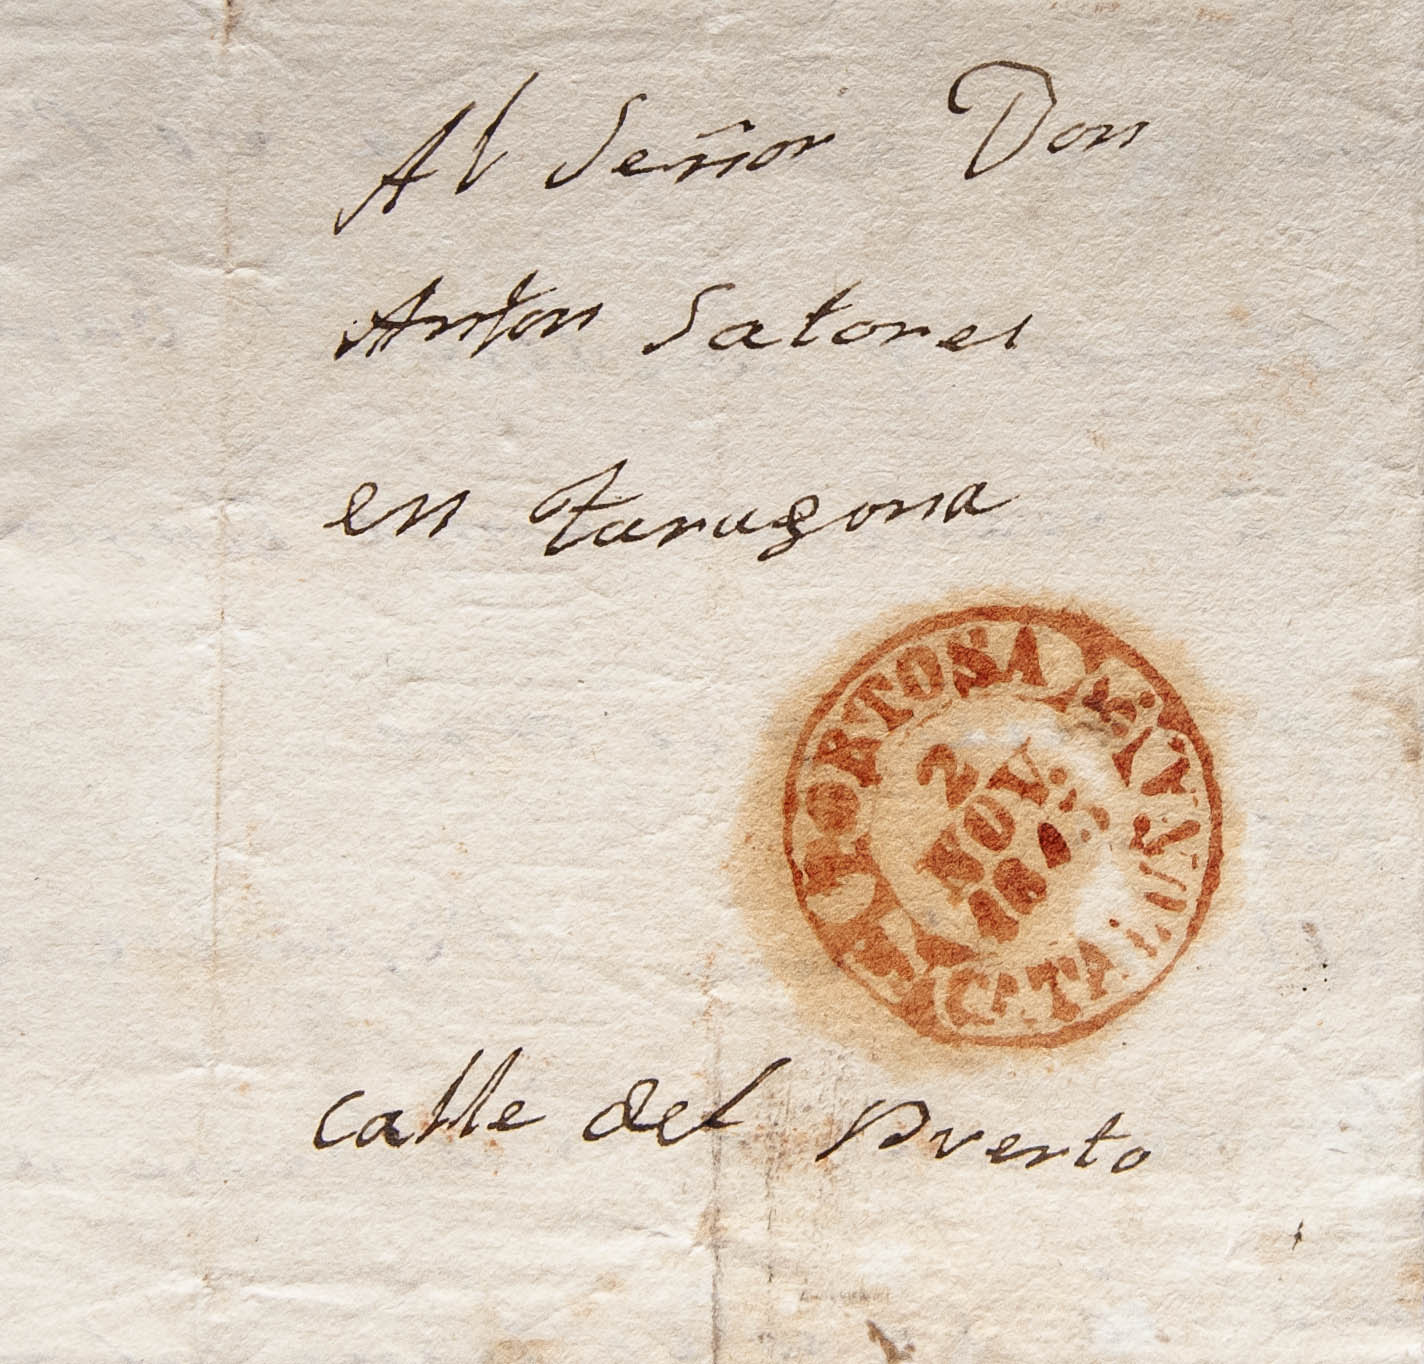 Al Señor Don
Anton Satores
en taragona
TORTOSA
2
NOV.
CATALUÑA
calle del Puerto